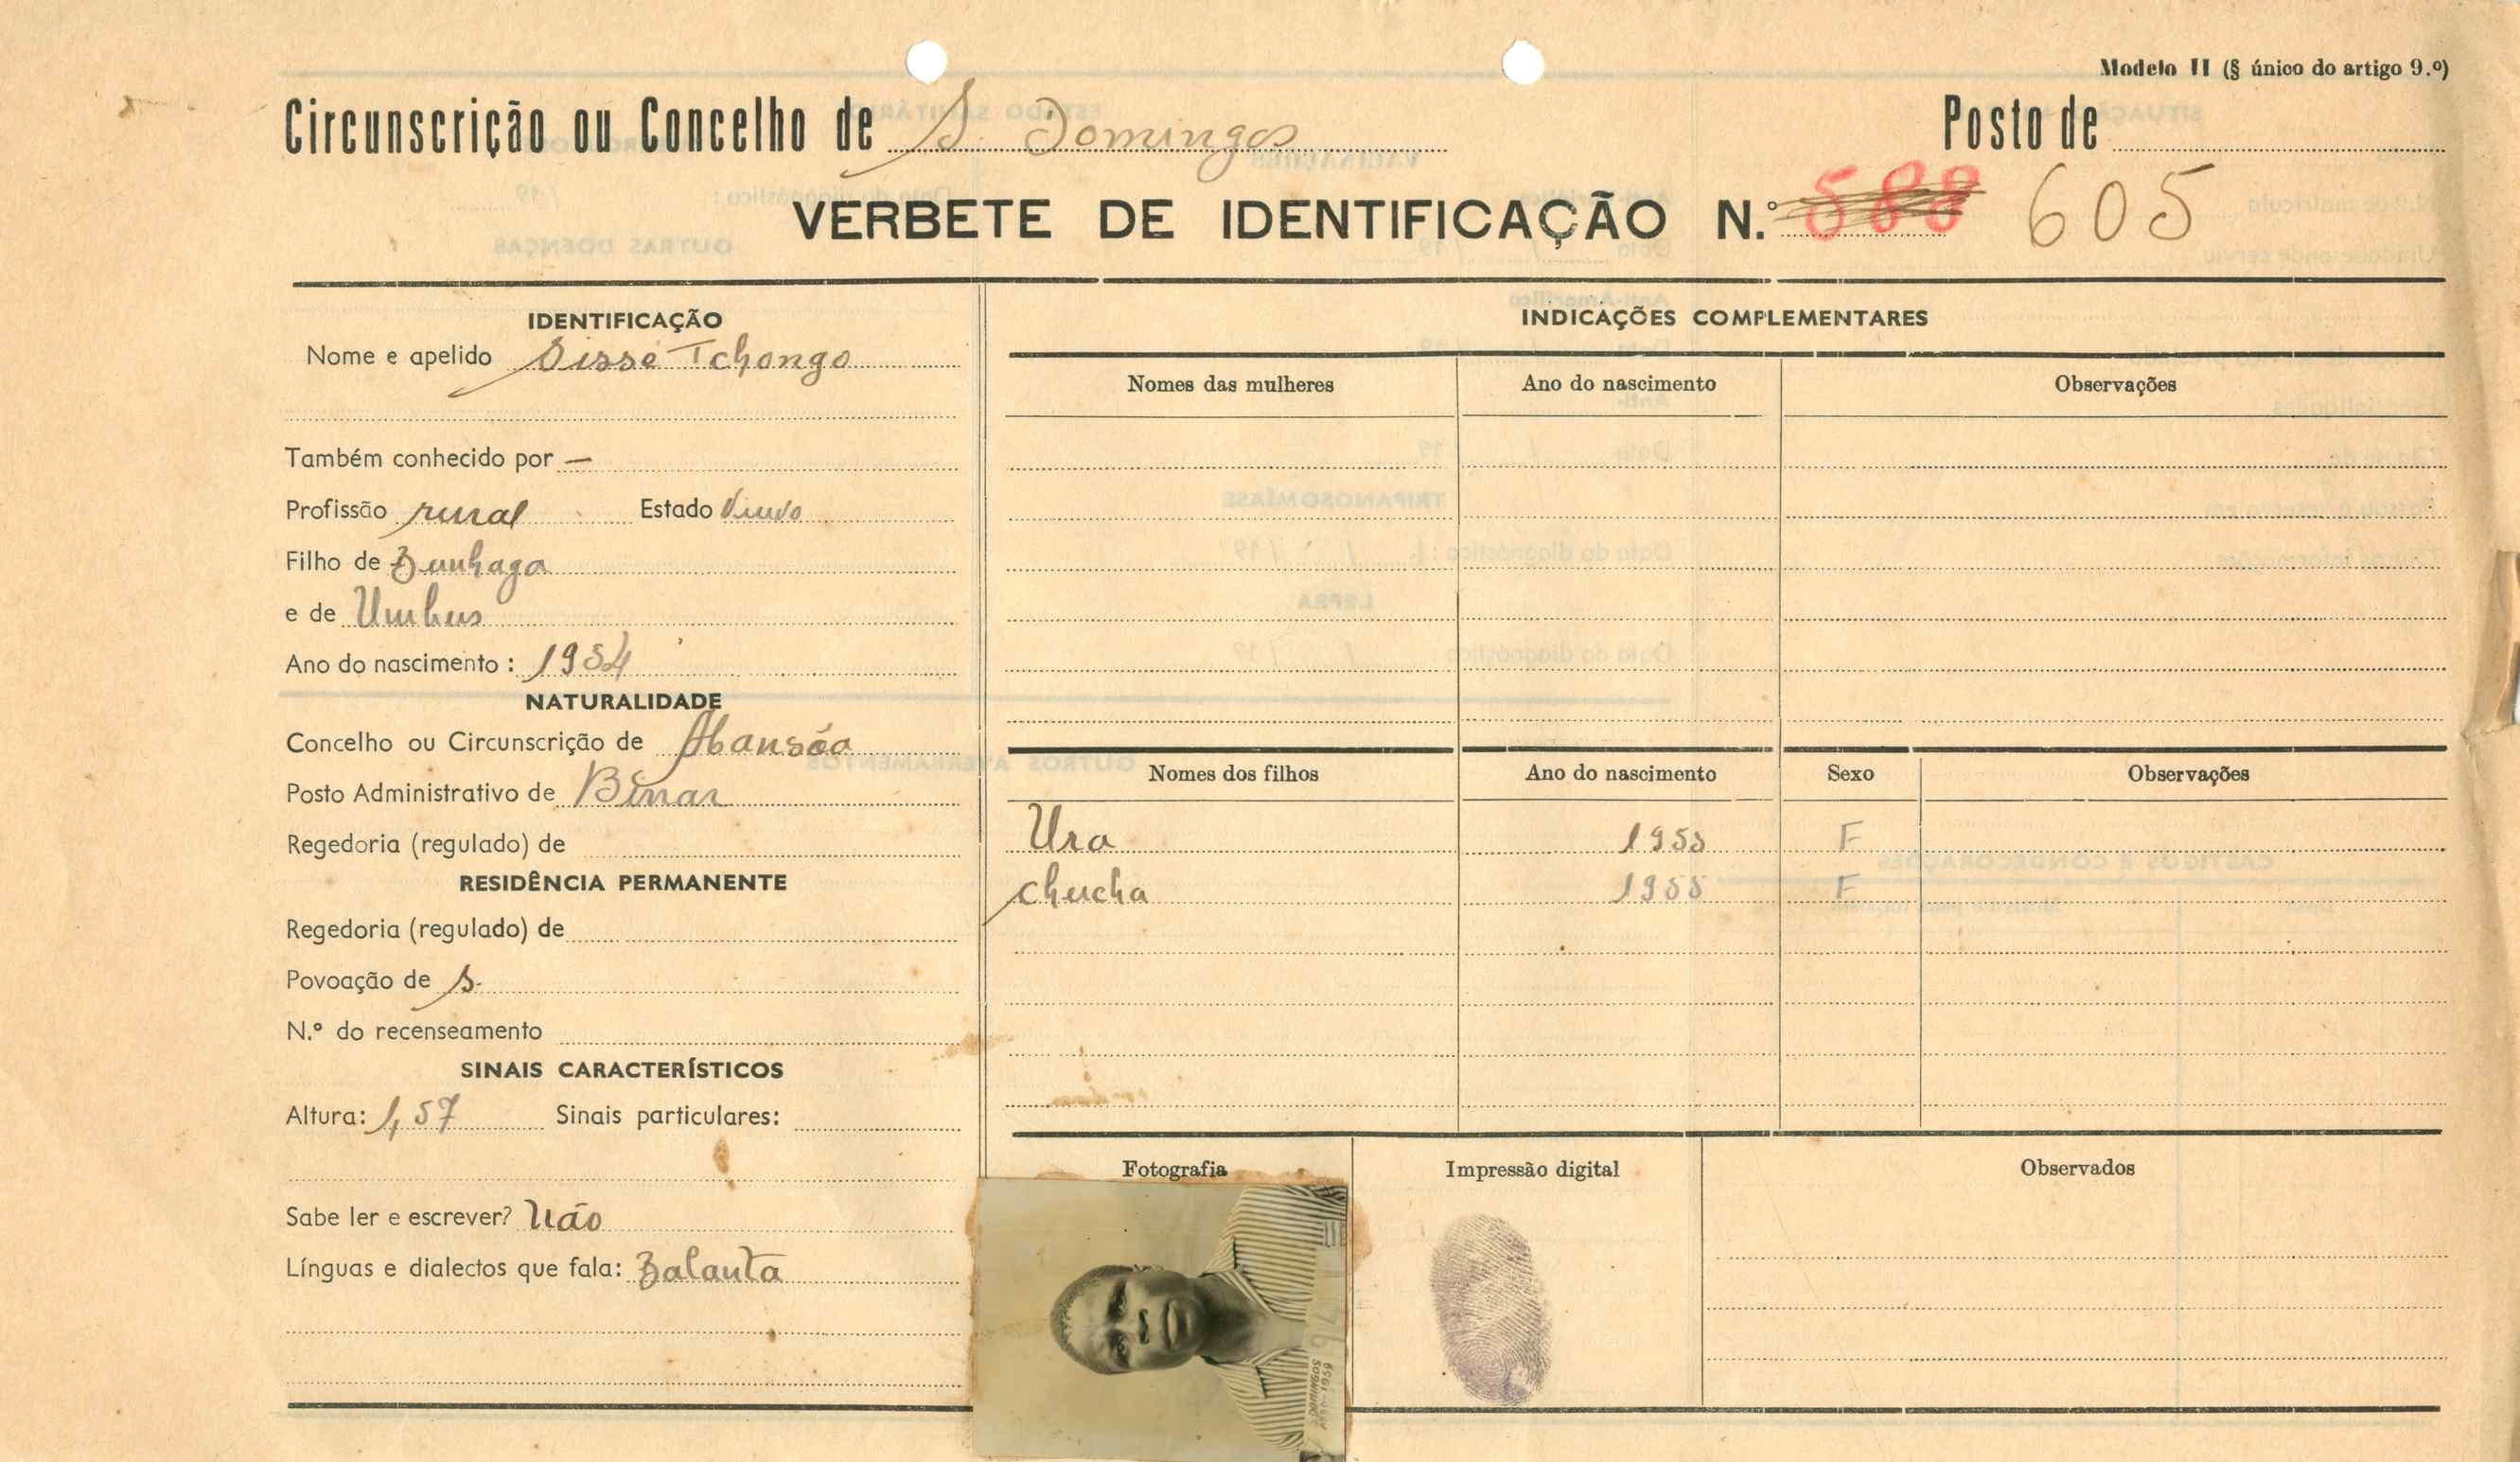 Modelo II (§ único do artigo 9.º)
Circunscrição ou Concelho de S. Domingos
Posto de
VERBETE DE IDENTIFICAÇÃO N.º 588 605
IDENTIFICAÇÃO
Nome e apelido Sissé Tchongo
Também conhecido por —
Profissão rural Estado Viuvo
Filho de Bunhaga
e de Umhus
Ano do nascimento: 1934
NATURALIDADE
Concelho ou Circunscrição de Mansôa
Posto Administrativo de Binar
Regedoria (regulado) de
RESIDÊNCIA PERMANENTE
Regedoria (regulado) de
Povoação de S.
N.º do recenseamento
SINAIS CARACTERÍSTICOS
Altura: 1,57 Sinais particulares:
Sabe ler e escrever? Não
Línguas e dialectos que fala: Balanta
INDICAÇÕES COMPLEMENTARES
Nomes das mulheres Ano do nascimento Observações
Nomes dos filhos Ano do nascimento Sexo Observações
Ura 1953 F
Chucha 1955 F
Fotografia Impressão digital Observados
DOMINGOS
1959